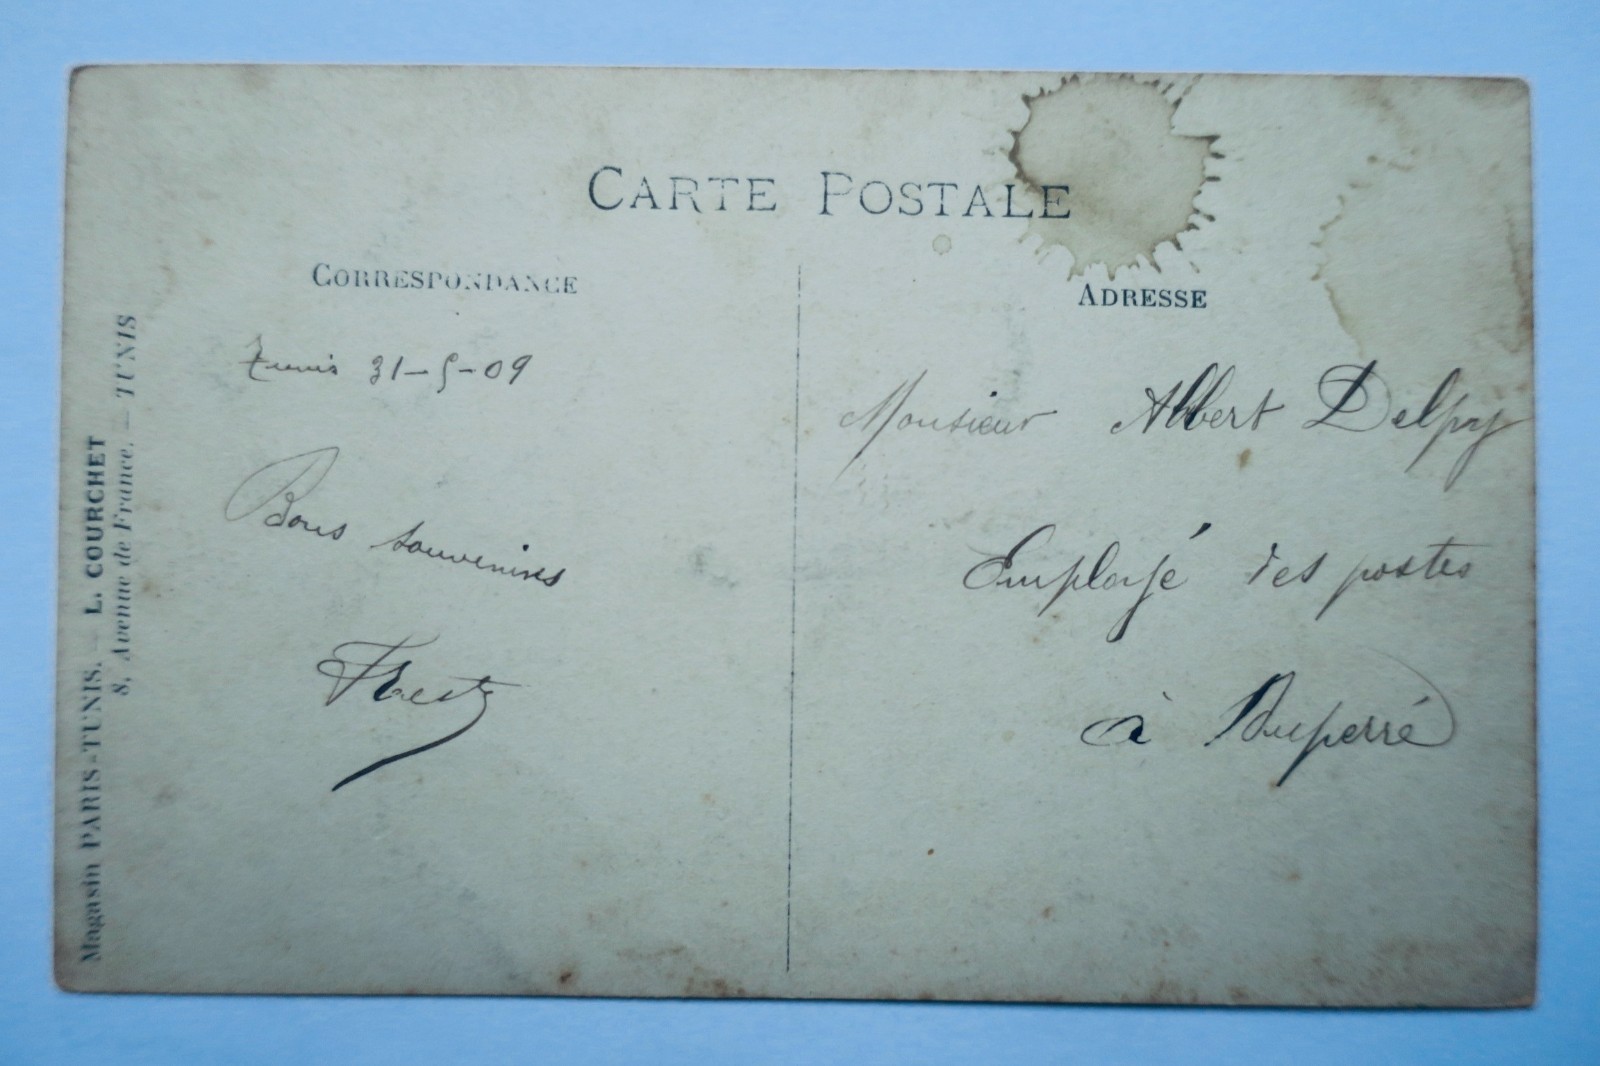 CARTE POSTALE
CORRESPONDANCE
ADRESSE
Tunis 31-5-09
Bons souvenirs
Monsieur Albert Delpy
Employé des postes
à Duperré
Magasin PARIS-TUNIS. — L. COURCHET
8, Avenue de France. — TUNIS